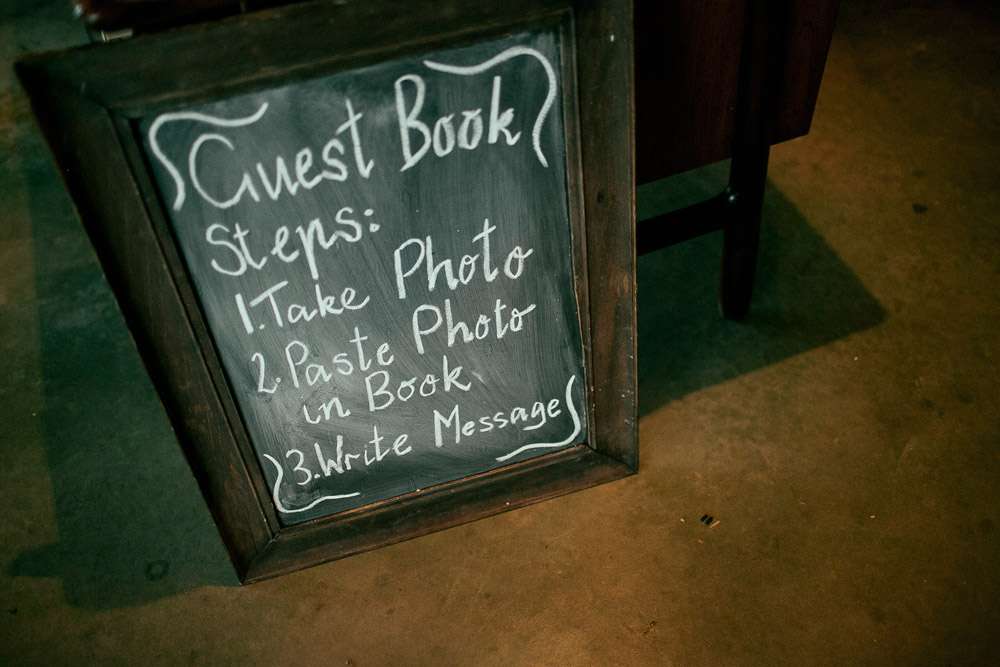 Guest Book
Steps:
1. Take Photo
2. Paste Photo
in Book
3. Write Message